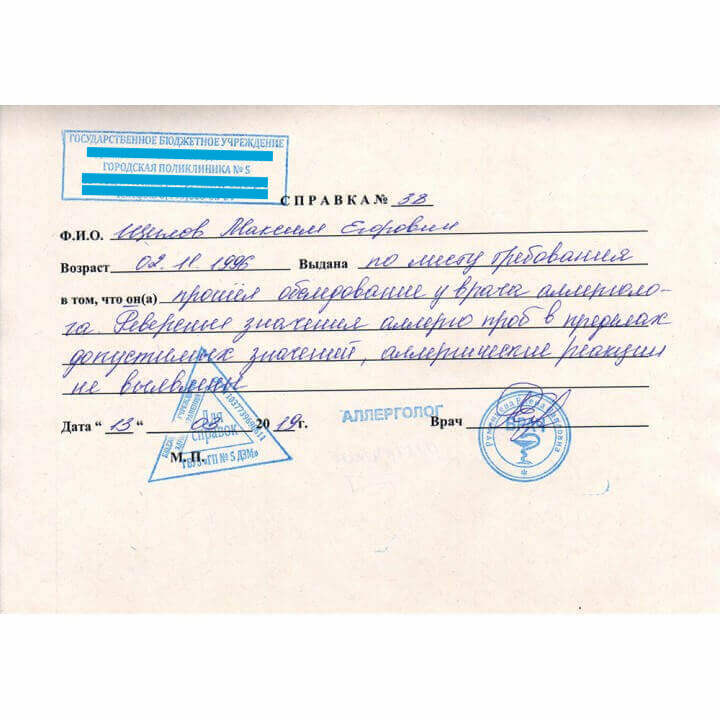 ГОСУДАРСТВЕННОЕ БЮДЖЕТНОЕ УЧРЕЖДЕНИЕ
ГОРОДСКАЯ ПОЛИКЛИНИКА № 5
СПРАВКА № 38
Ф.И.О. Максим Егорович
Возраст 02.11.1996 Выдана по месту требования
в том, что он(а) прошёл обследование у врача аллерголо-
га. значения аллерго проб в пределах
допустимых значений, аллергические реакции
не выявлены
Дата " 13 " 03 2019г.
АЛЛЕРГОЛОГ
Врач
Для
справок
ГБУЗ «ГП № 5 ДЗМ»
М. П.
ВРАЧ